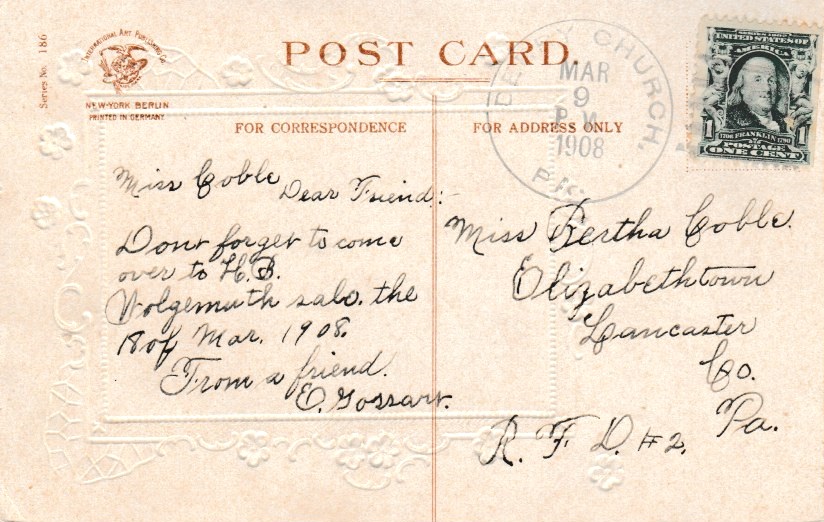 Series No. 186
INTERNATIONAL ART PUBLISHING CO.
NEW-YORK BERLIN
PRINTED IN GERMANY
POST CARD.
FOR CORRESPONDENCE
FOR ADDRESS ONLY
CHURCH,
MAR
9
P.M.
1908
PA.
SERIES 1902
UNITED STATES OF
AMERICA
1706 FRANKLIN 1790
1 POSTAGE 1
ONE CENT
Miss Coble Dear Friend:-
Dont forget to come
over to H.B.
Wolgemuth sale. the
18 of Mar. 1908.
From a friend.
E. Gossart.
Miss Bertha Coble.
Elizabethtown
Lancaster
Co.
Pa.
R. F. D. #2.